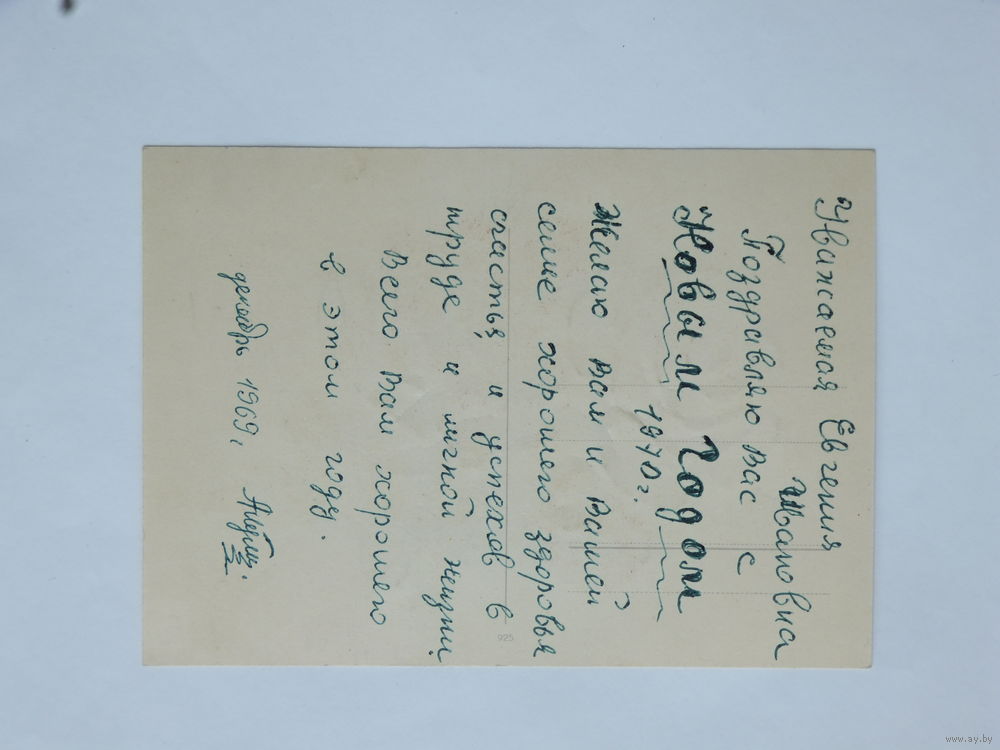 Уважаемая Евгения
Ивановна
Поздравляю Вас с
Новым Годом
1970 г.
Желаю Вам и Вашей
семье хорошего здоровья
счастья и успехов в
труде и личной жизни.
Всего Вам хорошего
в этом году.
декабрь 1969,
925
www.ay.by